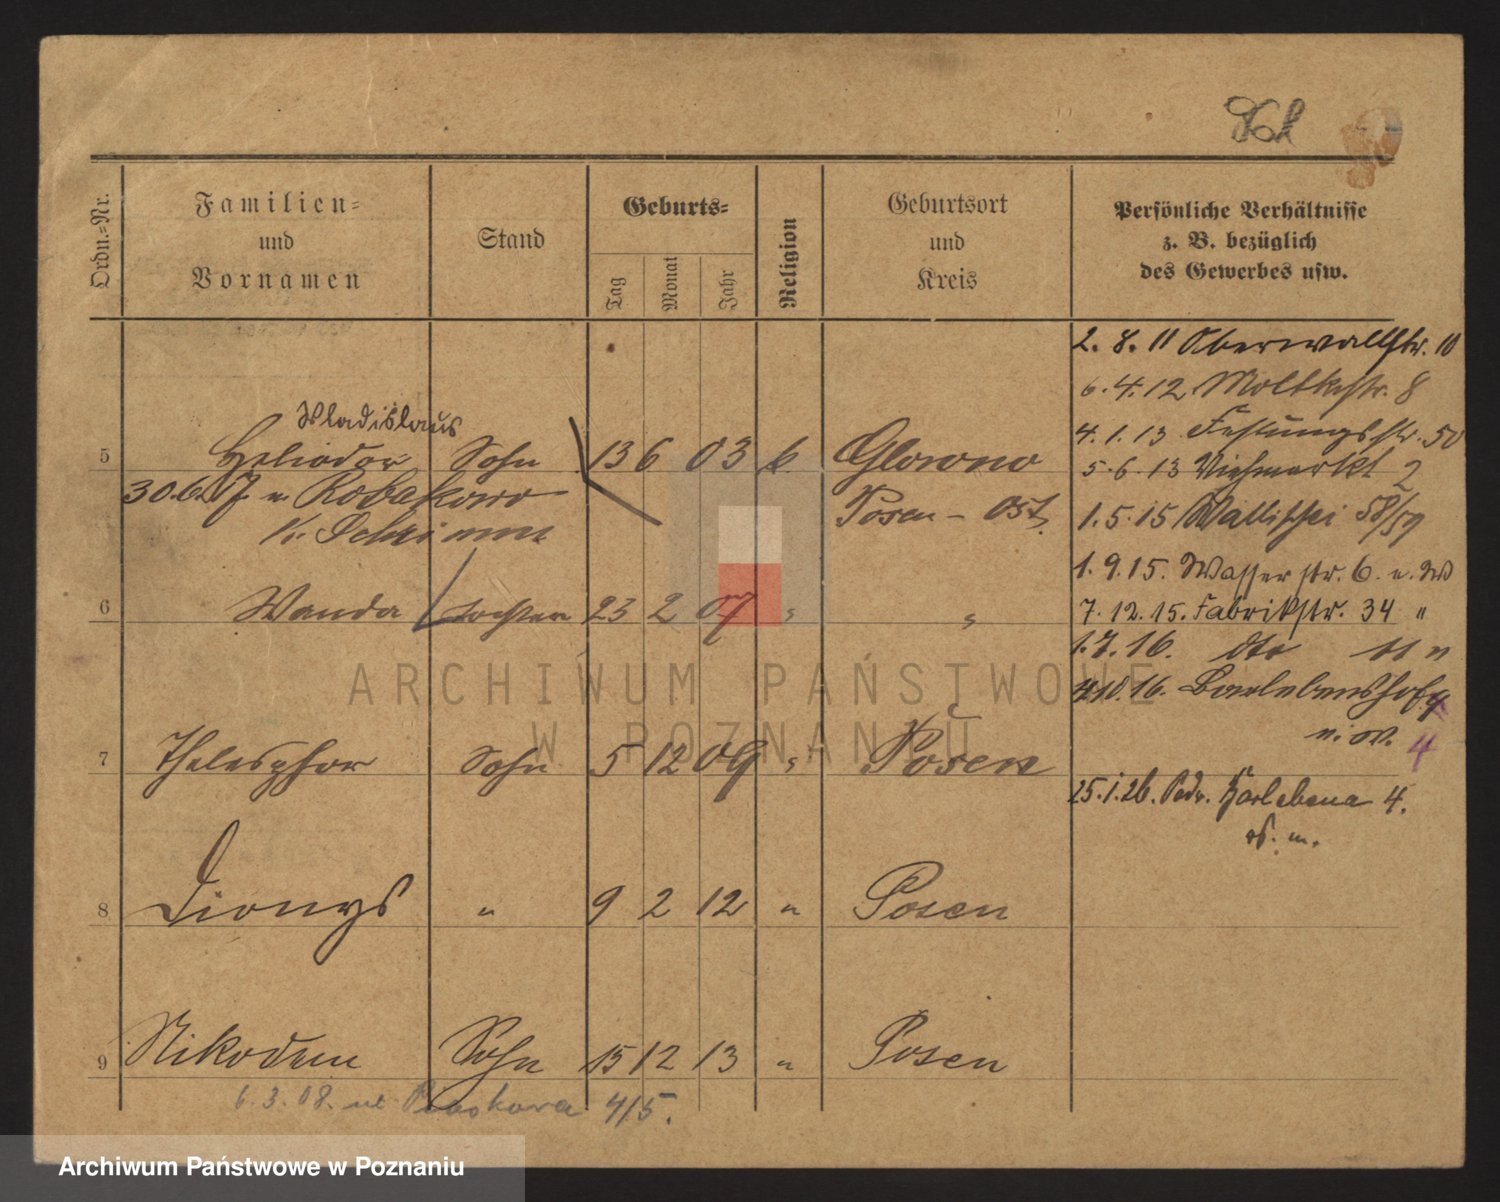 Ordn.=Nr.
Familien= und Vornamen
Stand
Geburts=
Tag
Monat
Jahr
Religion
Geburtsort und Kreis
Persönliche Verhältnisse z. B. bezüglich des Gewerbes usw.
2. 8. 11 Oberwallstr. 10
6. 4. 12 Moltkestr. 8
4. 1. 13 Festungsstr. 50
5. 6. 13 Viehmarkt 2
1. 5. 15 Wallischei 58/59
1. 9. 15. Wasserstr. 6. u. W
7. 12. 15. Fabrikstr. 34 "
1. 7. 16. dto 11 "
4. 10. 16. Barlebenshof
4
25. 1. 26. Karlebena 4.
m.
Wladislaus
5 Heliodor Sohn 13 6 03 k Glowno
30.6. Robakowo Posen - Ost.
K. Schrimm
6 Wanda Tochter 23 2 07 " "
7 Thelesphor Sohn 5 12 09 " Posen
8 Dionys " 9 2 12 " Posen
9 Nikodem Sohn 15 12 13 " Posen
6. 3. 08. Piaskowa 4/5.
ARCHIWUM PAŃSTWOWE
W POZNANIU
Archiwum Państwowe w Poznaniu